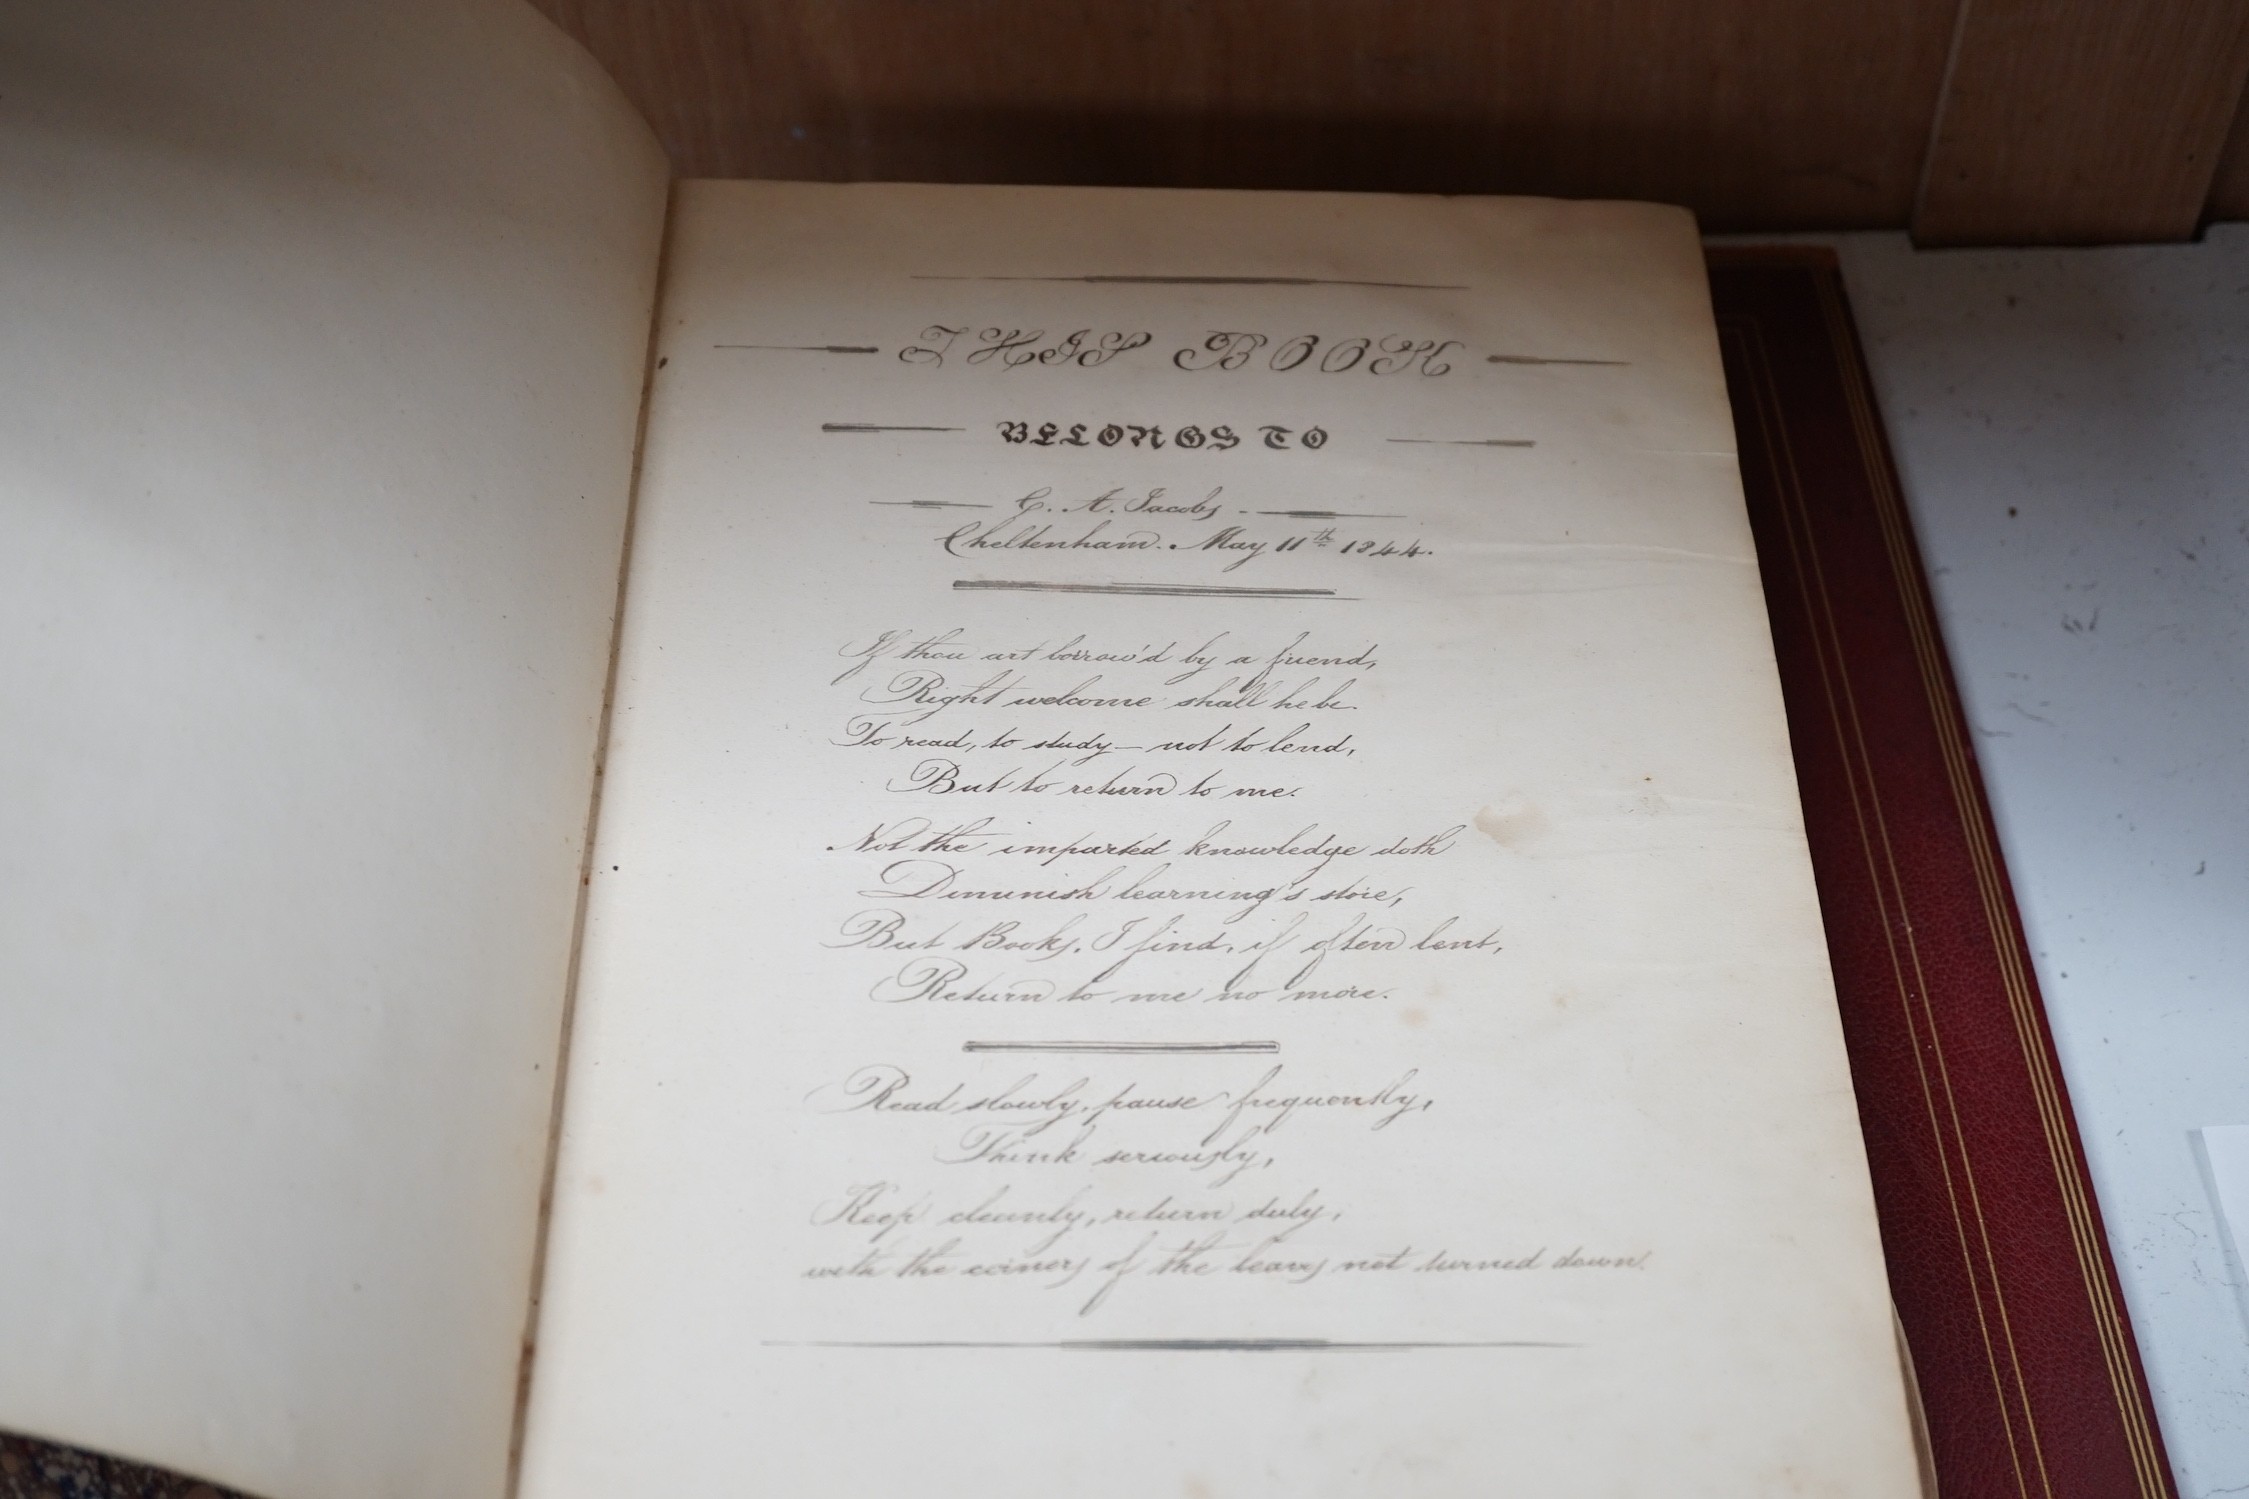 THIS BOOK
BELONGS TO
C. A. Jacobs -
Cheltenham. May 11th 1844.
If thou art borrow'd by a friend,
Right welcome shall he be.
To read, to study – not to lend,
But to return to me.
Not the imparted knowledge doth
Diminish learning's store,
But Books, I find, if often lent,
Return to me no more.
Read slowly, pause frequently,
Think seriously,
Keep cleanly, return duly,
with the corners of the leaves not turned down.